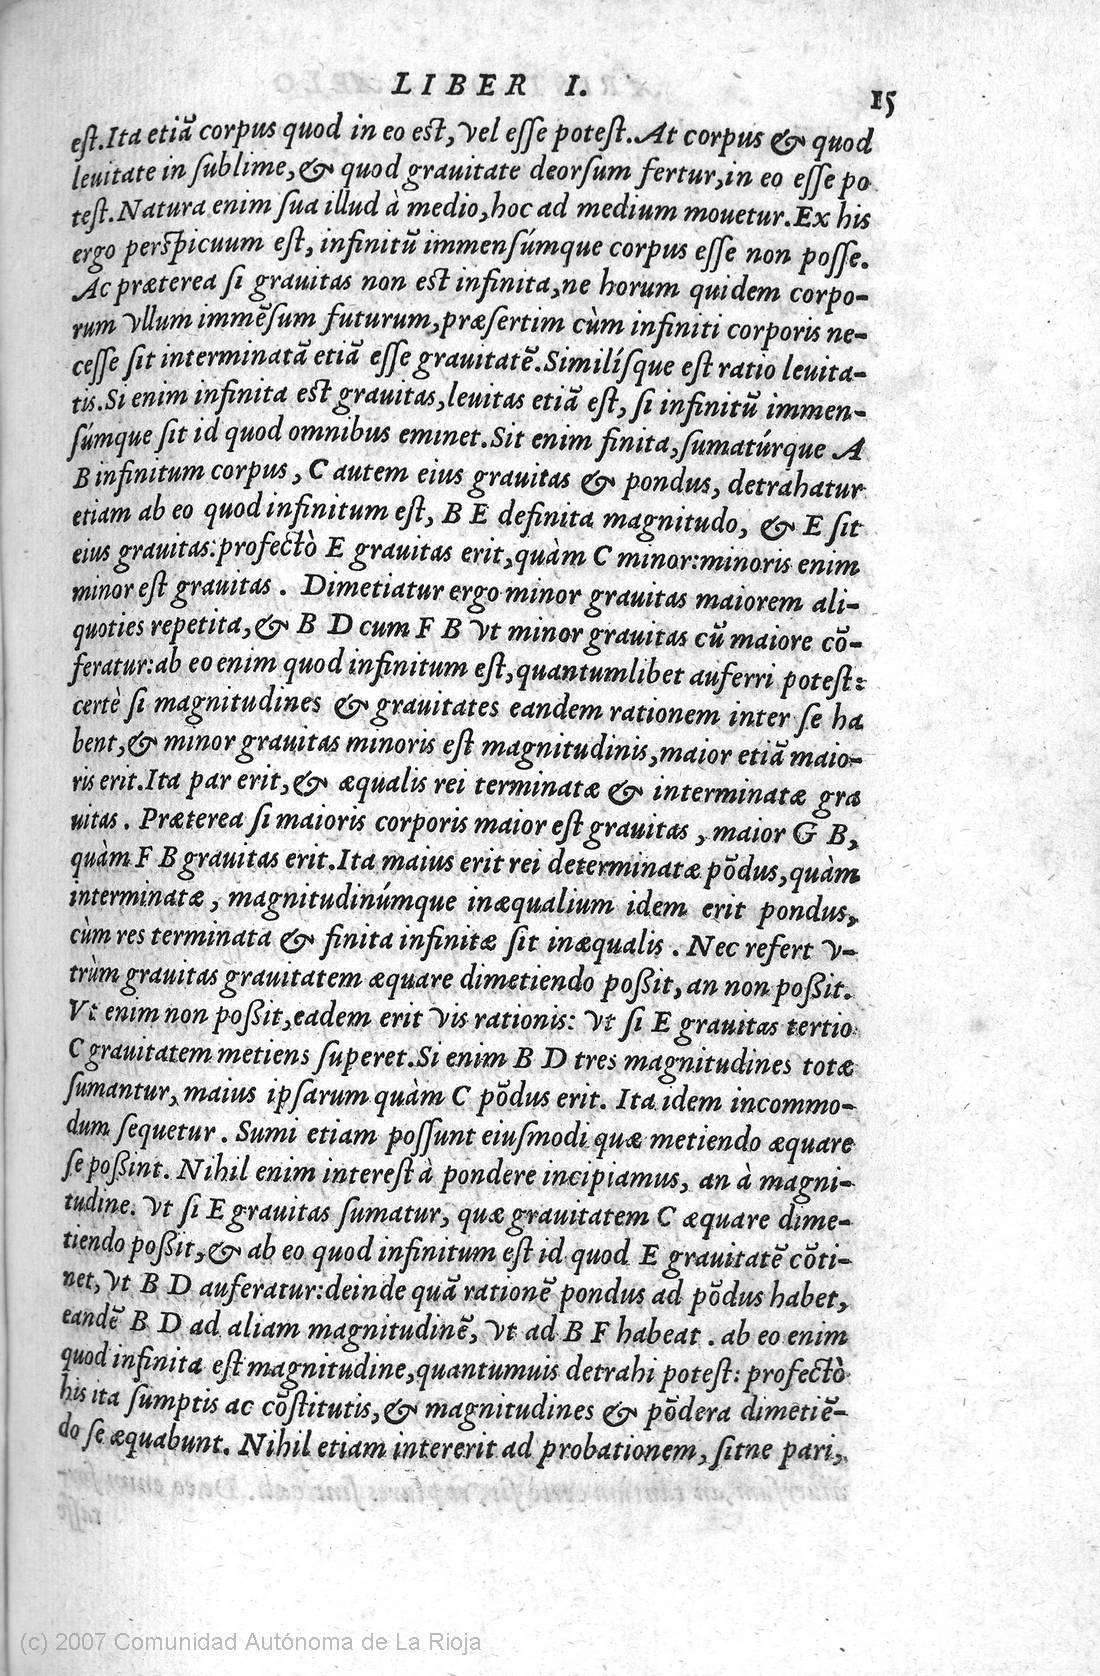 LIBER I.
15
est.Ita etiā corpus quod in eo est, vel esse potest. At corpus & quod
leuitate in sublime, & quod grauitate deorsum fertur, in eo esse po
test. Natura enim sua illud à medio, hoc ad medium mouetur. Ex his
ergo perspicuum est, infinitū immensúmque corpus esse non posse.
Ac præterea si grauitas non est infinita, ne horum quidem corpo-
rum vllum immēsum futurum, præsertim cùm infiniti corporis ne-
cesse sit interminatā etiā esse grauitatē. Similísque est ratio leuita-
tis. Si enim infinita est grauitas, leuitas etiā est, si infinitū immen-
súmque sit id quod omnibus eminet. Sit enim finita, sumatúrque A
B infinitum corpus, C autem eius grauitas & pondus, detrahatur
etiam ab eo quod infinitum est, B E definita magnitudo, & E sit
eius grauitas: profectò E grauitas erit, quàm C minor: minoris enim
minor est grauitas. Dimetiatur ergo minor grauitas maiorem ali-
quoties repetita, & B D cum F B vt minor grauitas cū maiore cō-
feratur: ab eo enim quod infinitum est, quantumlibet auferri potest:
certè si magnitudines & grauitates eandem rationem inter se ha
bent, & minor grauitas minoris est magnitudinis, maior etiā maio-
ris erit. Ita par erit, & æqualis rei terminatæ & interminatæ gra
uitas. Præterea si maioris corporis maior est grauitas, maior G B,
quàm F B grauitas erit. Ita maius erit rei determinatæ pōdus, quàm
interminatæ, magnitudinúmque inæqualium idem erit pondus,
cùm res terminata & finita infinitæ sit inæqualis. Nec refert v-
trùm grauitas grauitatem æquare dimetiendo possit, an non possit.
Vt enim non possit, eadem erit vis rationis: vt si E grauitas tertio
C grauitatem metiens superet. Si enim B D tres magnitudines totæ
sumantur, maius ipsarum quàm C pōdus erit. Ita idem incommo-
dum sequetur. Sumi etiam possunt eiusmodi quæ metiendo æquare
se possint. Nihil enim interest à pondere incipiamus, an à magni-
tudine. vt si E grauitas sumatur, quæ grauitatem C æquare dime-
tiendo possit, & ab eo quod infinitum est id quod E grauitatē cōti-
net, vt B D auferatur: deinde quā rationē pondus ad pōdus habet,
eandē B D ad aliam magnitudinē, vt ad B F habeat. ab eo enim
quod infinita est magnitudine, quantumuis detrahi potest: profectò
his ita sumptis ac cōstitutis, & magnitudines & pōdera dimetiē-
do se æquabunt. Nihil etiam intererit ad probationem, sitne pari,
(c) 2007 Comunidad Autónoma de La Rioja